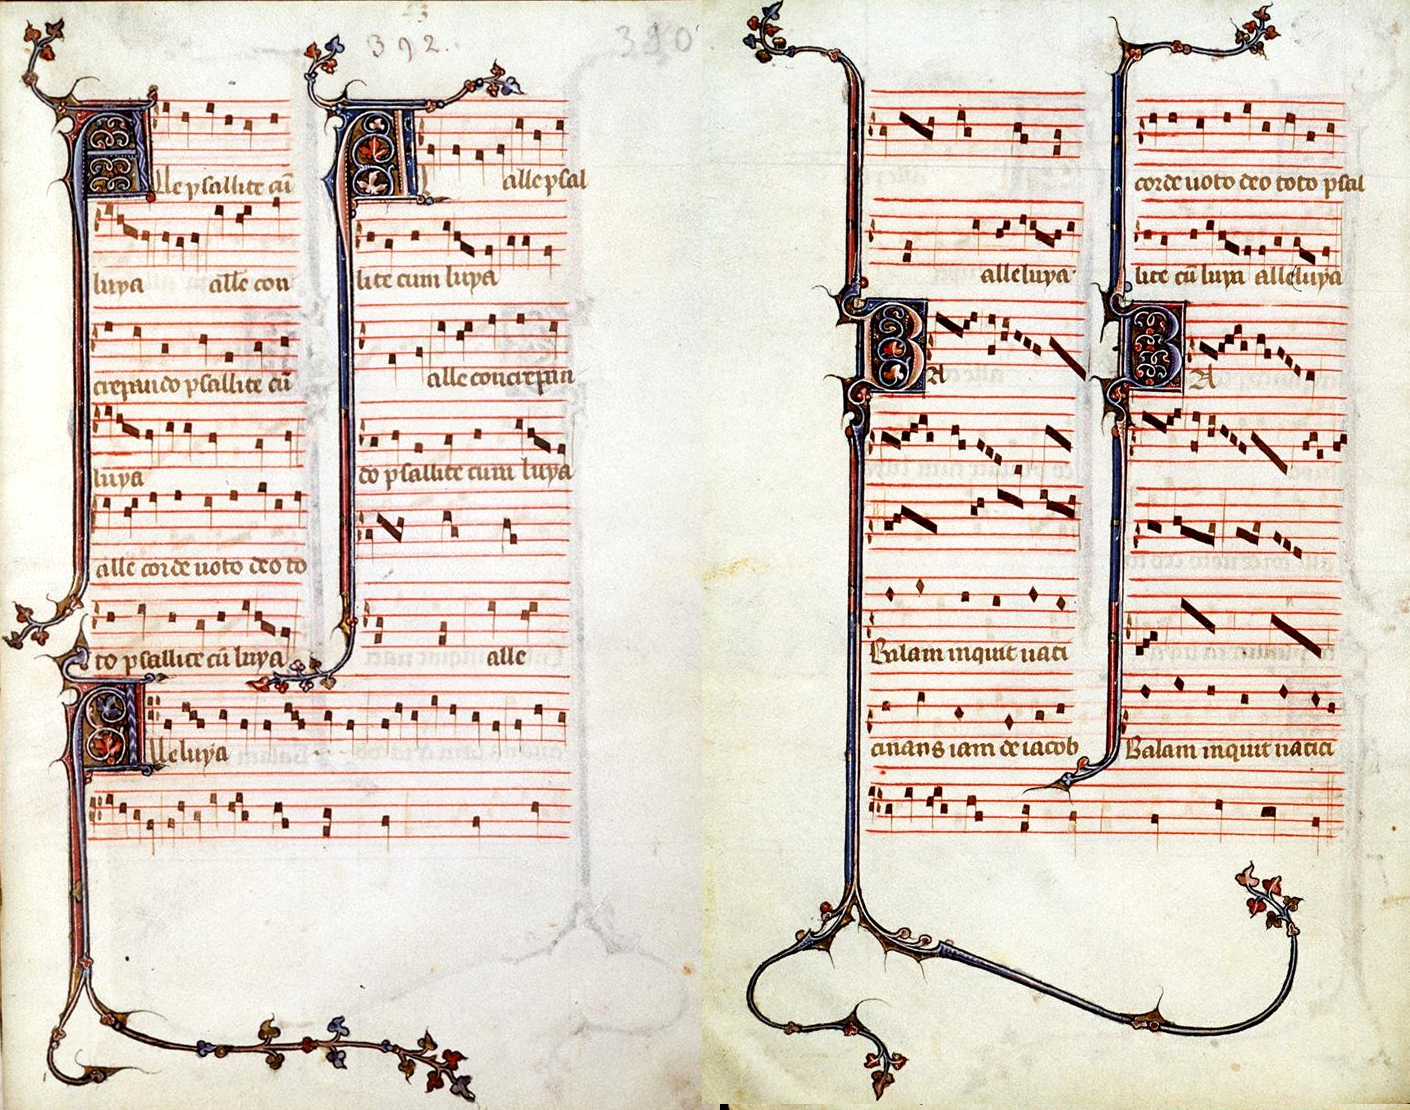 392.
390
Alle psallite cū
luya alle con
crepando psallite cū
luya
alle corde uoto deo to
to psallite cū luya
A alle psal
lite cum luya
alle concrepan
do psallite cum luya
alle
Alleluya
alleluya
BA
Balam inquit uati
cinans iam de iacob
corde uoto deo toto psal
lite cū luya alleluya
BA
Balam inquit uatici